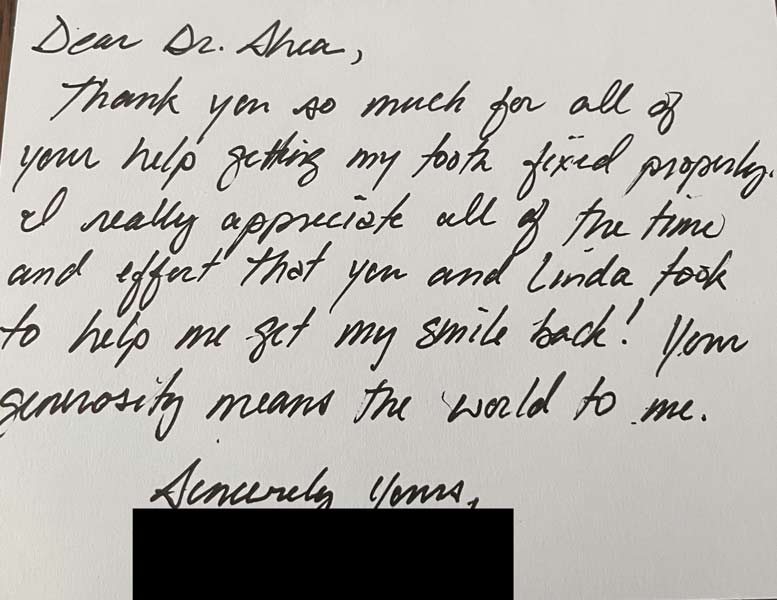 Dear Dr. Shea,
Thank you so much for all of
your help getting my tooth fixed properly.
I really appreciate all of the time
and effort that you and Linda took
to help me get my smile back! Your
generosity means the world to me.
Sincerely Yours,